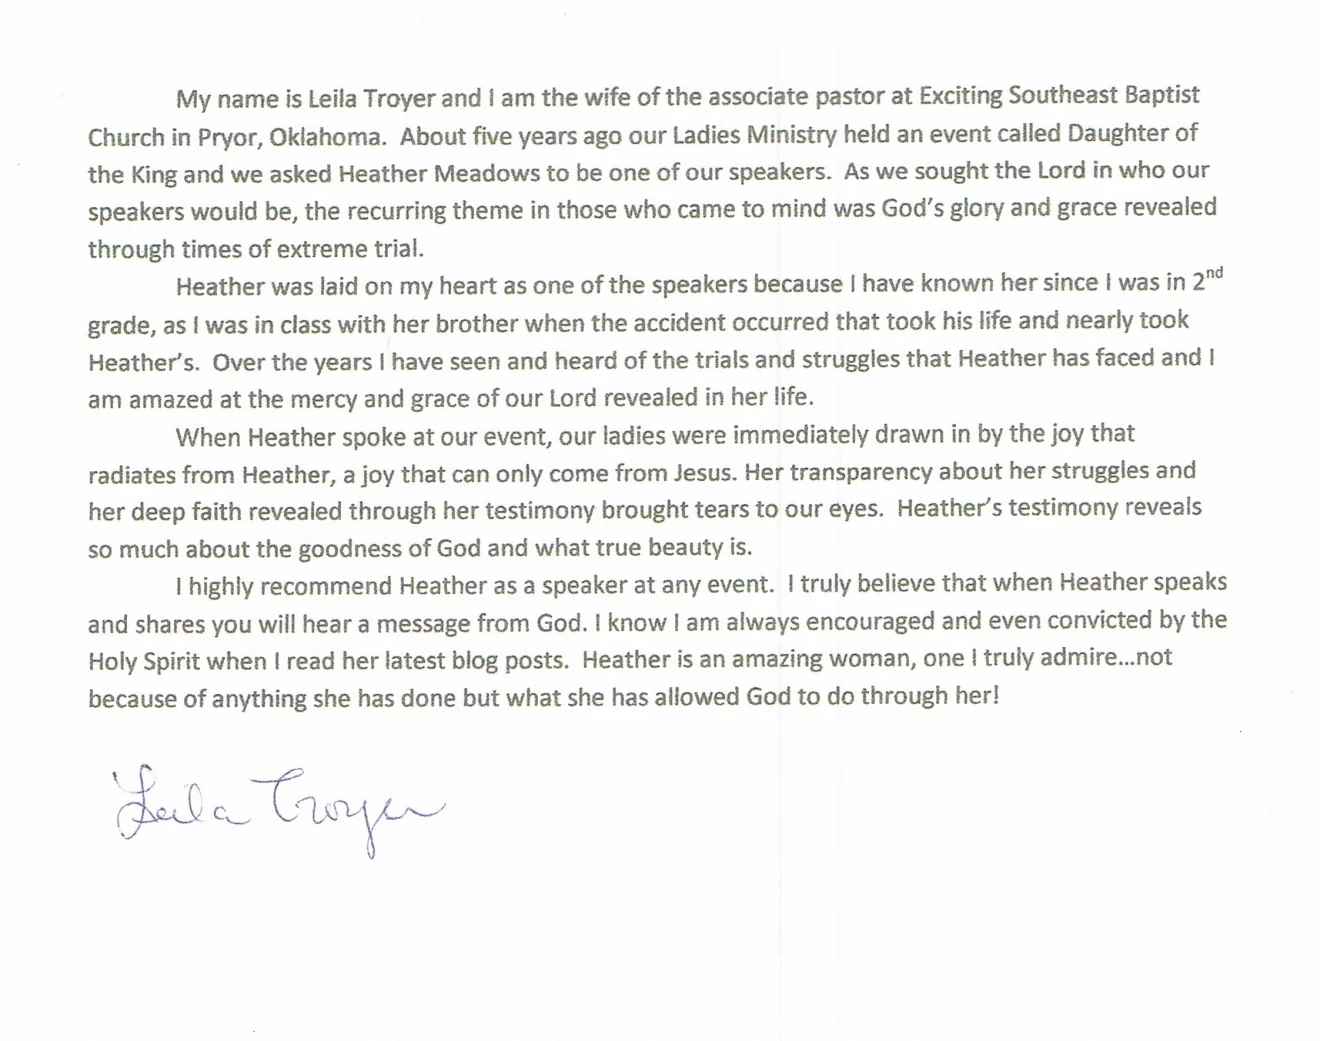 My name is Leila Troyer and I am the wife of the associate pastor at Exciting Southeast Baptist
Church in Pryor, Oklahoma.  About five years ago our Ladies Ministry held an event called Daughter of
the King and we asked Heather Meadows to be one of our speakers.  As we sought the Lord in who our
speakers would be, the recurring theme in those who came to mind was God's glory and grace revealed
through times of extreme trial.
Heather was laid on my heart as one of the speakers because I have known her since I was in 2nd
grade, as I was in class with her brother when the accident occurred that took his life and nearly took
Heather's.  Over the years I have seen and heard of the trials and struggles that Heather has faced and I
am amazed at the mercy and grace of our Lord revealed in her life.
When Heather spoke at our event, our ladies were immediately drawn in by the joy that
radiates from Heather, a joy that can only come from Jesus. Her transparency about her struggles and
her deep faith revealed through her testimony brought tears to our eyes.  Heather's testimony reveals
so much about the goodness of God and what true beauty is.
I highly recommend Heather as a speaker at any event.  I truly believe that when Heather speaks
and shares you will hear a message from God. I know I am always encouraged and even convicted by the
Holy Spirit when I read her latest blog posts.  Heather is an amazing woman, one I truly admire...not
because of anything she has done but what she has allowed God to do through her!
Leila Troyer